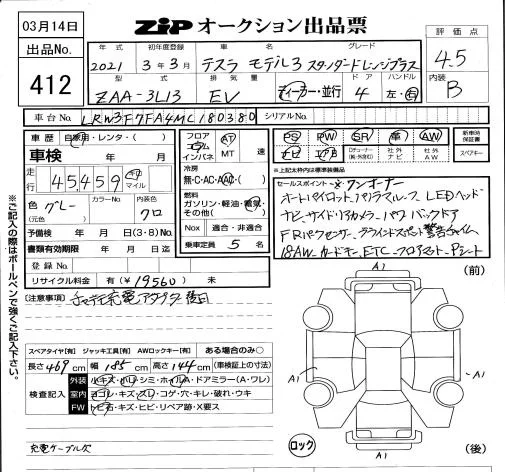 03月14日
ZIP オークション出品票
出品No.
412
評価点
4.5
内装
B
年式 初年度登録 車名 グレード
2021 3年3月 テスラ モデル3 スタンダードレンジプラス
型式 排気量 ドア ハンドル
ZAA-3L13 EV ディーラー・並行 4 左・右
車台No. LRW3F7FA4MC180380 シリアルNo.
車歴 自家用・レンタ・( )
車検 年 月
走行 45459 キロ マイル
色 グレー (元色) カラーNo. 内装色 クロ
予備検 年 月 (3・8) No.
書類有効期限 年 月 日迄
登録No.
リサイクル料金 有(¥19560) 未
フロア コラム インパネ AT MT 速
冷房 無・C・AC・AAC・( )
燃料 ガソリン・軽油・電気・その他( )
Nox 適合・非適合
乗車定員 5 名
PS PW SR 革 AW
ナビ エアB TVチューナー(純・社外) 社外ナビ 社外AW
新車時保証書
スペアキー
※上記太枠内は標準装備品
セールスポイント ☆ワンオーナー
オートパイロット、パノラマルーフ、LEDヘッド
ナビ、サイド・リアカメラ、パワーバックドア
FRパークセンサー、ブラインドスポット警告チャイム
18AW、カードキー、ETC、フロアマット、Pシート
[注意事項] チャデモ充電アダプタ後日
スペアタイヤ[有] ジャッキ工具[有] AWロックキー[有] ある場合のみ○
長さ 469 cm 幅 185 cm 高さ 144 cm (車検証上の寸法)
検査記入
外装 小キズ・小凹・シミ・ホイルA・ドアミラー(A・ワレ)
室内 ヨゴレ・キズ・スレ・コゲ・穴・キレ・破れ・ウキ
FW トビ石・キズ・ヒビ・リペア跡・X要ス
充電ケーブル欠
(前)
A1
A1
A1
A1
ロック
(後)
※ご記入の際はボールペンで強くご記入下さい。